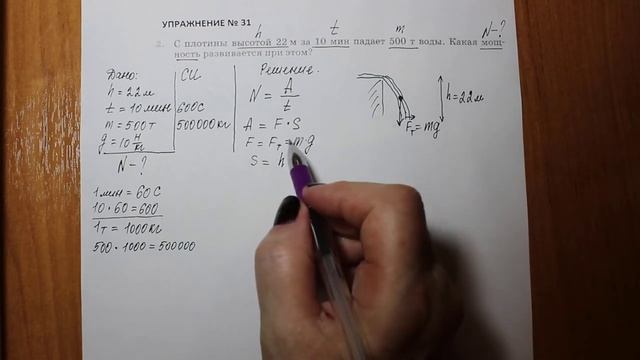 УПРАЖНЕНИЕ № 31
h t m N-?
2. С плотины высотой 22 м за 10 мин падает 500 т воды. Какая мощ-
ность развивается при этом?
Дано: СИ Решение.
h = 22 м
t = 10 мин 600 с
m = 500 т 500000 кг
g = 10 Н/кг
N - ?
N = A/t
A = F · S
F = Fт = m·g
S = h
1 мин = 60 с
10 · 60 = 600
1 т = 1000 кг
500 · 1000 = 500000
h = 22 м
Fт = mg